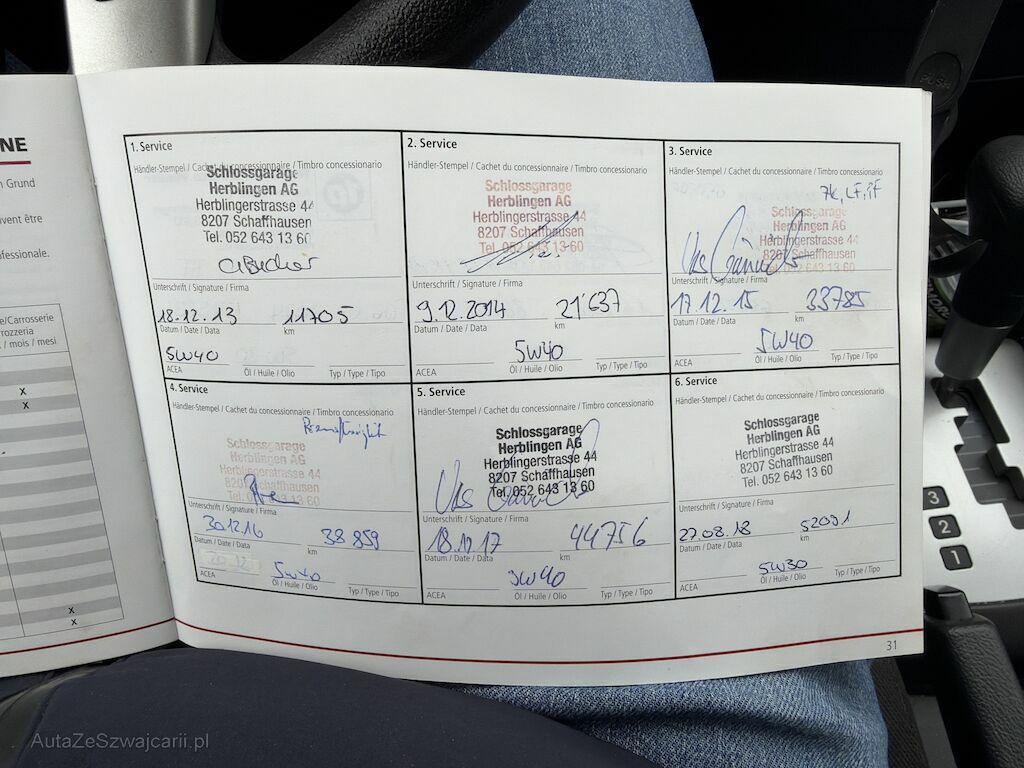 NE
n Grund
vent être
fessionale.
e/Carrosserie
rrozzeria
/ mois / mesi
x
x
x
x
1. Service
Händler-Stempel / Cachet du concessionnaire / Timbro concessionario
Schlossgarage
Herblingen AG
Herblingerstrasse 44
8207 Schaffhausen
Tel. 052 643 13 60
Unterschrift / Signature / Firma
18.12.13 11705
Datum / Date / Data km
5W40
ACEA Öl / Huile / Olio Typ / Type / Tipo
2. Service
Händler-Stempel / Cachet du concessionnaire / Timbro concessionario
Schlossgarage
Herblingen AG
Herblingerstrasse 44
8207 Schaffhausen
Tel. 052 643 13 60
Unterschrift / Signature / Firma
9.12.2014 21'637
Datum / Date / Data km
5W40
ACEA Öl / Huile / Olio Typ / Type / Tipo
3. Service
Händler-Stempel / Cachet du concessionnaire / Timbro concessionario
Schlossgarage
Herblingen AG
Herblingerstrasse 44
8207 Schaffhausen
Tel. 052 643 13 60
Unterschrift / Signature / Firma
17.12.15 33785
Datum / Date / Data km
5W40
ACEA Öl / Huile / Olio Typ / Type / Tipo
4. Service
Händler-Stempel / Cachet du concessionnaire / Timbro concessionario
Schlossgarage
Herblingen AG
Herblingerstrasse 44
8207 Schaffhausen
Tel. 052 643 13 60
Unterschrift / Signature / Firma
30.12.16 38 859
Datum / Date / Data km
5W40
ACEA Öl / Huile / Olio Typ / Type / Tipo
5. Service
Händler-Stempel / Cachet du concessionnaire / Timbro concessionario
Schlossgarage
Herblingen AG
Herblingerstrasse 44
8207 Schaffhausen
Tel. 052 643 13 60
Unterschrift / Signature / Firma
18.12.17 44756
Datum / Date / Data km
5W40
ACEA Öl / Huile / Olio Typ / Type / Tipo
6. Service
Händler-Stempel / Cachet du concessionnaire / Timbro concessionario
Schlossgarage
Herblingen AG
Herblingerstrasse 44
8207 Schaffhausen
Tel. 052 643 13 60
Unterschrift / Signature / Firma
27.08.18 52091
Datum / Date / Data km
5W30
ACEA Öl / Huile / Olio Typ / Type / Tipo
31
3
2
1
AutaZeSzwajcarii.pl